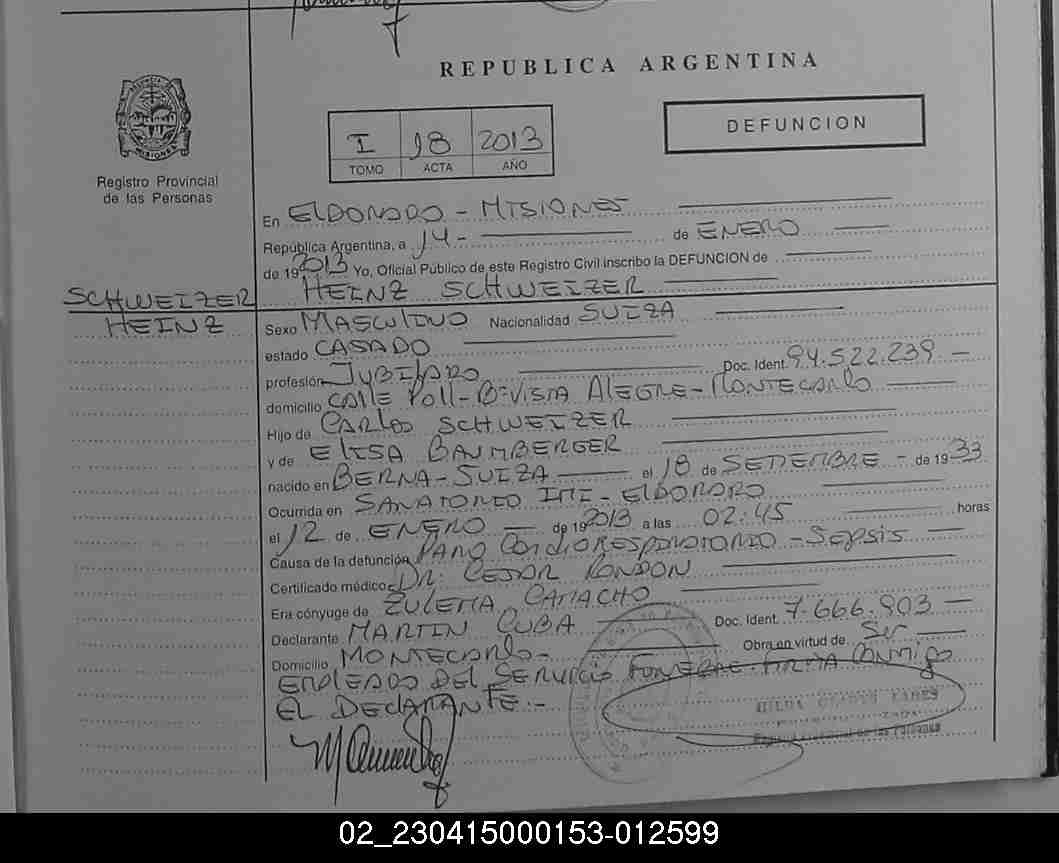 REPUBLICA ARGENTINA
MISIONES
Registro Provincial
de las Personas
I 18 2013
TOMO ACTA AÑO
DEFUNCION
En ELDORADO - MISIONES
República Argentina, a 14 - de ENERO
de 19 2013 Yo, Oficial Público de este Registro Civil inscribo la DEFUNCION de
HEINZ SCHWEIZER
SCHWEIZER
HEINZ
Sexo MASCULINO Nacionalidad SUIZA
estado CASADO
profesión JUBILADO Doc. Ident. 94.522.239 -
domicilio CALLE POLL-Bº VISTA ALEGRE - MONTECARLO
Hijo de CARLOS SCHWEIZER
y de ELISA BAUMBERGER
nacido en BERNA - SUIZA el 18 de SETIEMBRE - de 1933
Ocurrida en SANATORIO IMI - ELDORADO
el 12 de ENERO de 19 2013 a las 02:45 horas
Causa de la defunción PARO CARDIORESPIRATORIO - SEPSIS
Certificado médico DR. CESAR RONDON
Era cónyuge de ZULEMA CAMACHO
Declarante MARTIN CUBA Doc. Ident. 7.666.903 -
Domicilio MONTECARLO - Obra en virtud de SER
EMPLEADO DEL SERVICIO FUNEBRE FIRMA CONMIGO
EL DECLARANTE.-
02_230415000153-012599